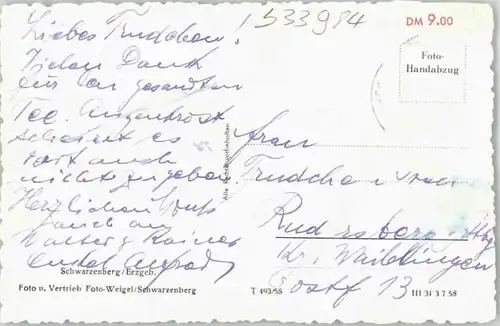 533984
DM 9.00
Foto-
Handabzug
Liebes Trudchen!
Vielen Dank
für den gesandten
Tee. Augentrost
scheint es
dort auch
nicht zu geben.
Herzlichen Gruß
auch an
Walter & Rainer
Frau
Trudchen
Rudersberg
Kr. Waiblingen
Postf 13
Schwarzenberg/Erzgeb.
Foto u. Vertrieb Foto-Weigel/Schwarzenberg
T 493/58
III 31 3 7 58